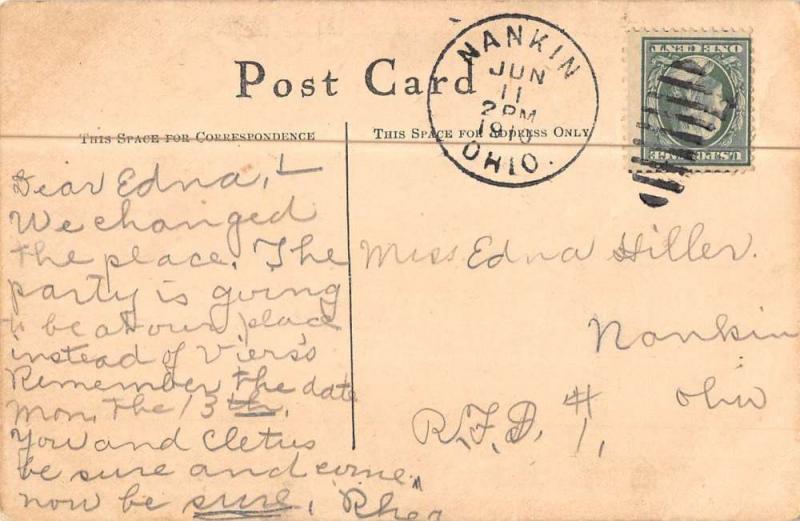 Post Card
NANKIN
JUN
11
2PM
1910
OHIO.
ONE CENT
U.S. POSTAGE
THIS SPACE FOR CORRESPONDENCE
THIS SPACE FOR ADDRESS ONLY
Dear Edna, L
We changed
the place. The
party is going
to be at our place
instead of Viers's
Remember the date
Mon. the 13th.
You and Cletus
be sure and come
now be sure,
Miss Edna Hiller.
Nankin
Ohio
R.F.D. #1.